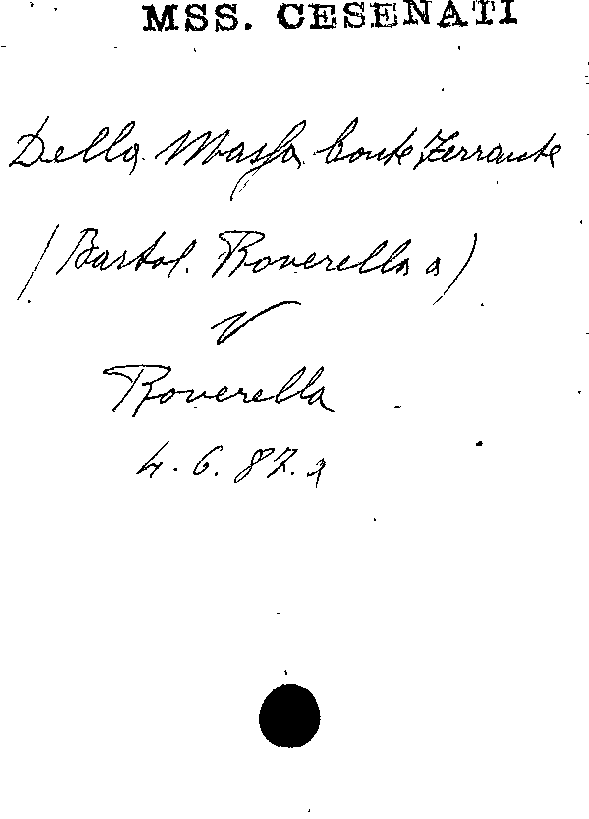 MSS. CESENATI
Della Massa Conte Ferrante
(Bartol. Roverella a)
V
Roverella
4. 6. 87. a